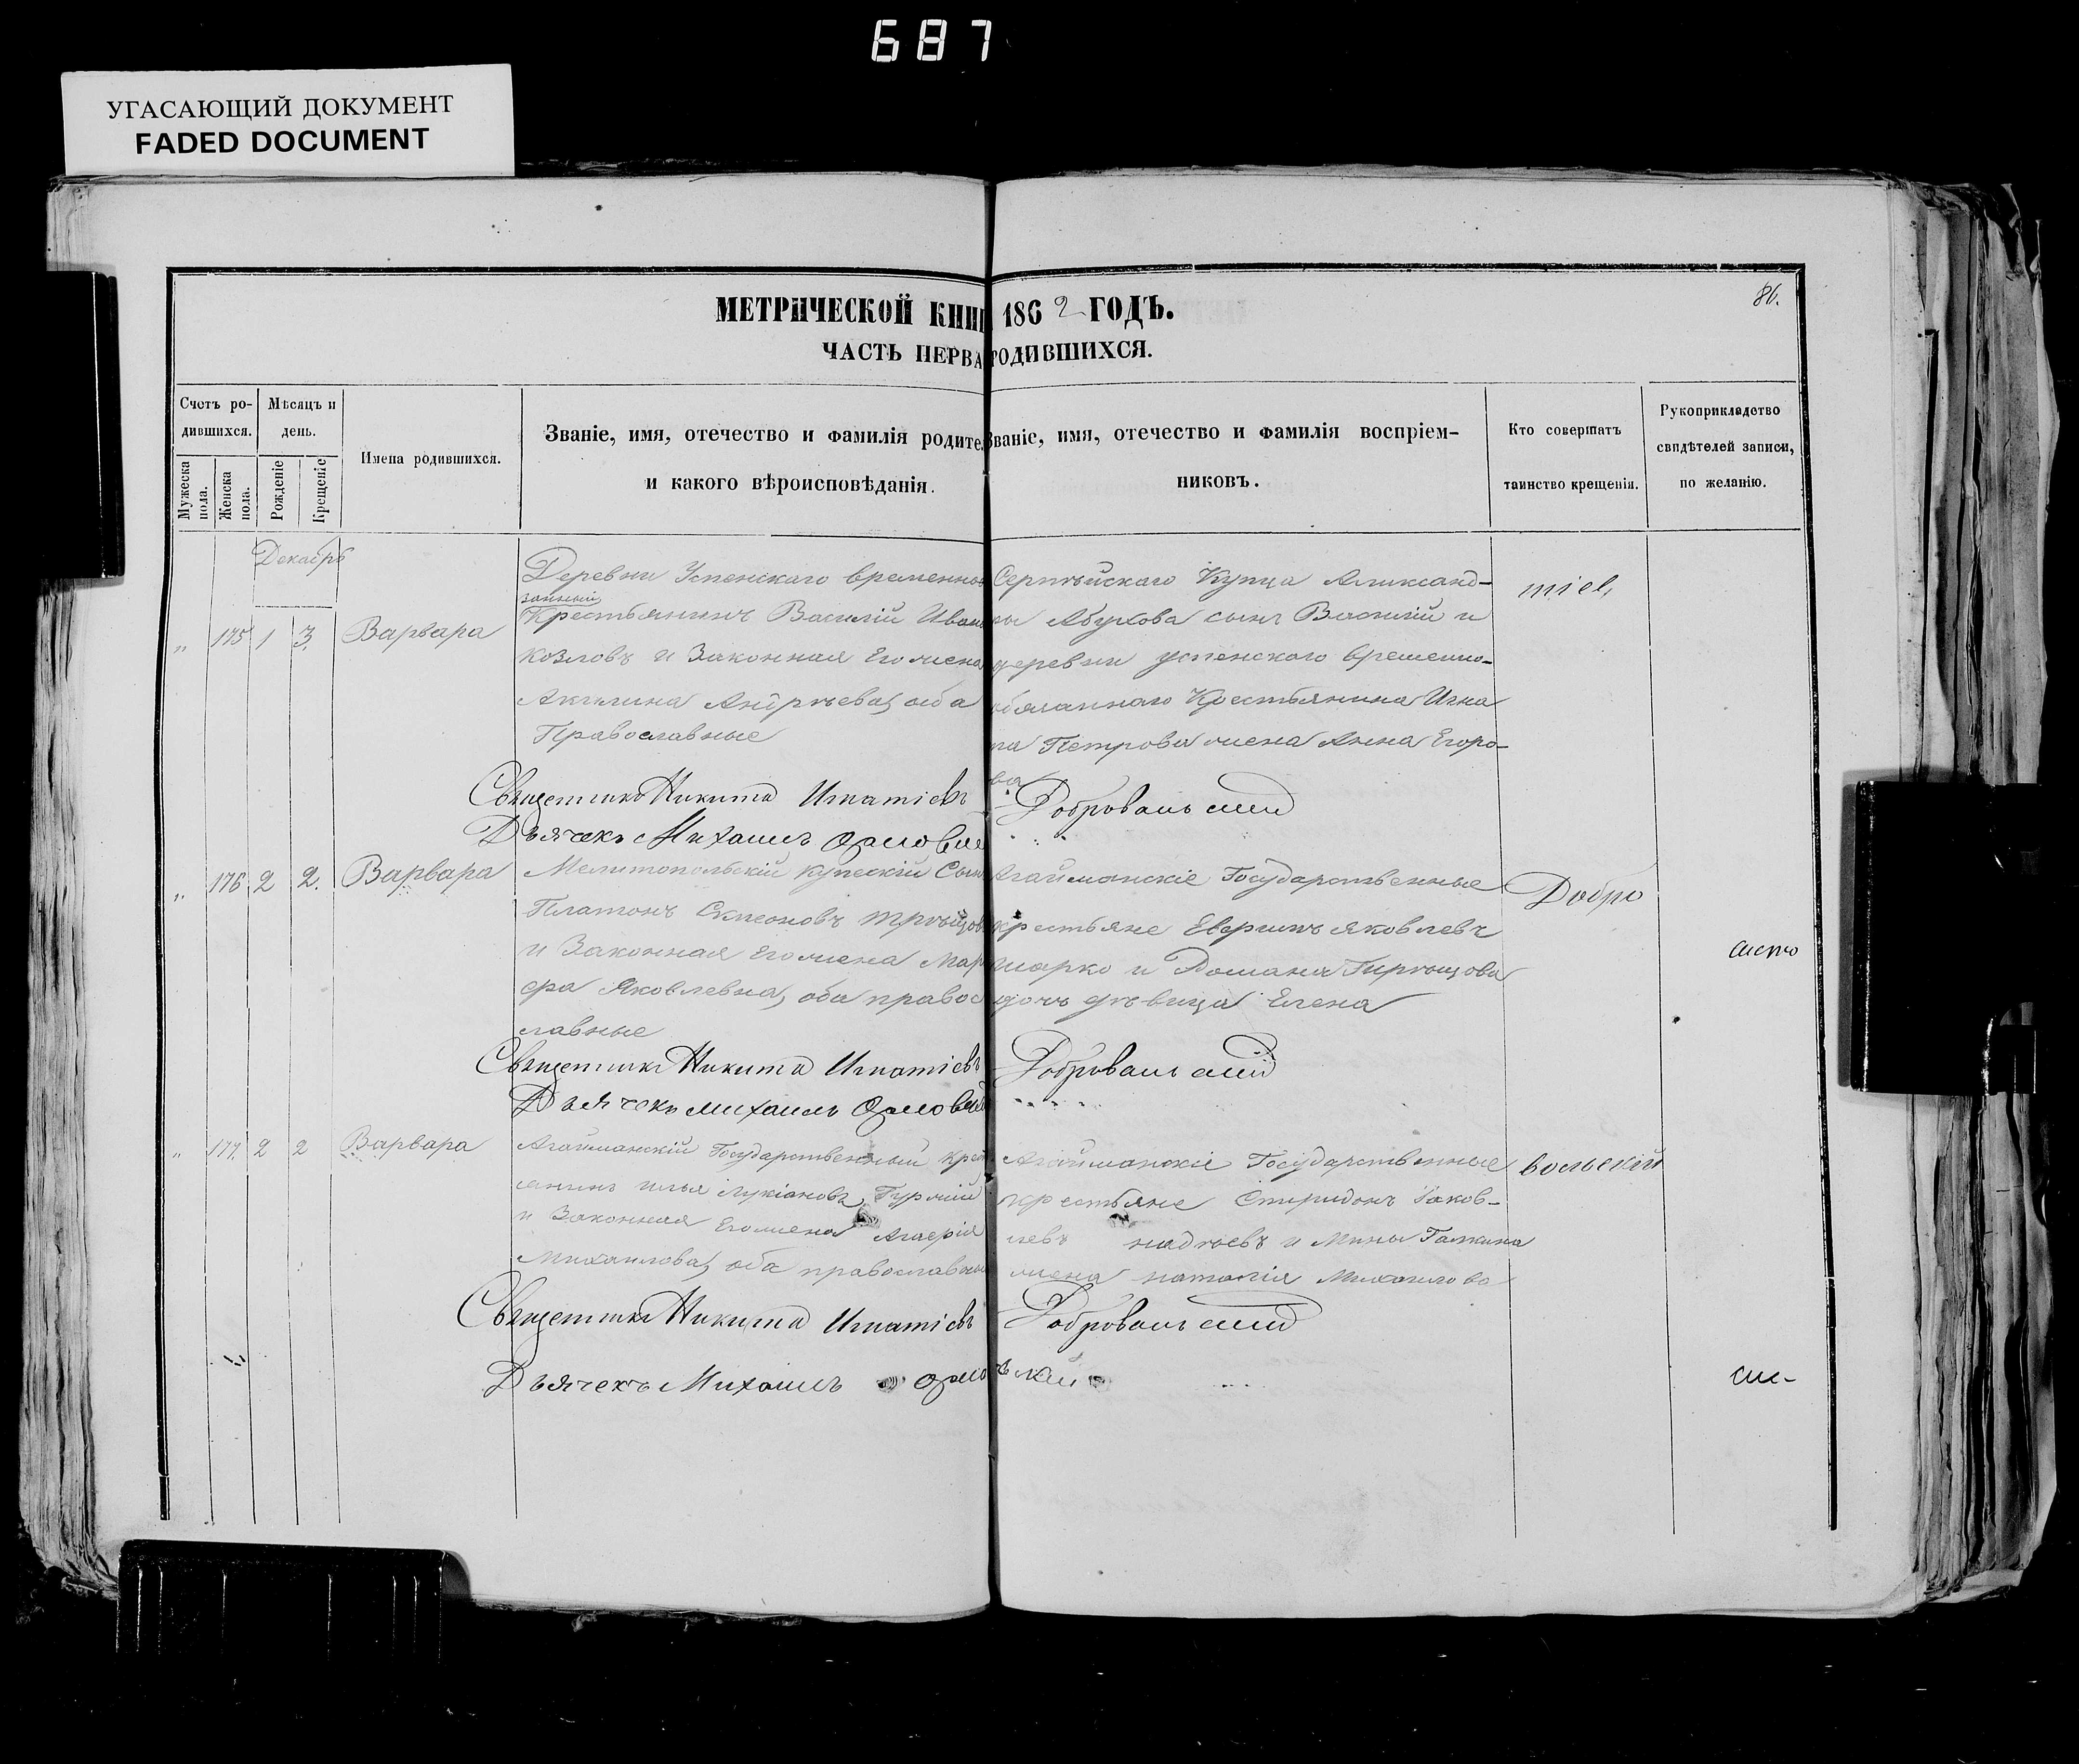 687
УГАСАЮЩИЙ ДОКУМЕНТ
FADED DOCUMENT
86.
МЕТРИЧЕСКОЙ КНИГ 1862 ГОДЪ.
ЧАСТЬ ПЕРВА РОДИВШИХСЯ.
Счетъ ро-
дившихся.
Мѣсяцъ и
день.
Мужеска
пола.
Женска
пола.
Рожденіе
Крещеніе
Имена родившихся.
Званіе, имя, отечество и фамилія родите
и какого вѣроисповѣданія.
Званіе, имя, отечество и фамилія воспріем-
никовъ.
Кто совершатъ
таинство крещенія.
Рукоприкладство
свидѣтелей записи,
по желанію.
Декабрь
" 175 1 3. Варвара
Деревни Успенскаго временно
занный
Крестьянинъ Василій Ивано
Козловъ и Законная Его жена
Акилина Андрѣева, оба
Православные
Купца Александ-
ры Абухова сынъ Василій и
деревни успенского временно-
обязаннаго Крестьянина Игна
та Петрова жена Анна Егоро-
ва
Священникъ Никита Игнатіевъ Добровольскій
Дьячекъ Михаилъ Орловск
" 176 2 2. Варвара
Мелитопольскій купескій Сынъ
Платонъ Симеоновъ
и Законная Его жена Мар
фа Яковлевна, оба правос
лавные
Агайманскіе Государственные
крестьяне Яковлевъ
и
дочь дѣвица Елена
Добро
Священникъ Никита Игнатіевъ Добровольскій
Дьячекъ Михаилъ Орловскій
" 177. 2 2 Варвара
Агайманскій Государственный крест
янинъ Илья Лукіановъ
и Законная Его жена
Михаилова, оба православные
Агайманскіе Государственные
крестьяне Спиридонъ Іаков-
левъ и Мины Галкина
жена Наталія Михаилова
вольскій
Священникъ Никита Игнатіевъ Добровольскій
Дьячекъ Михаилъ Орловскій